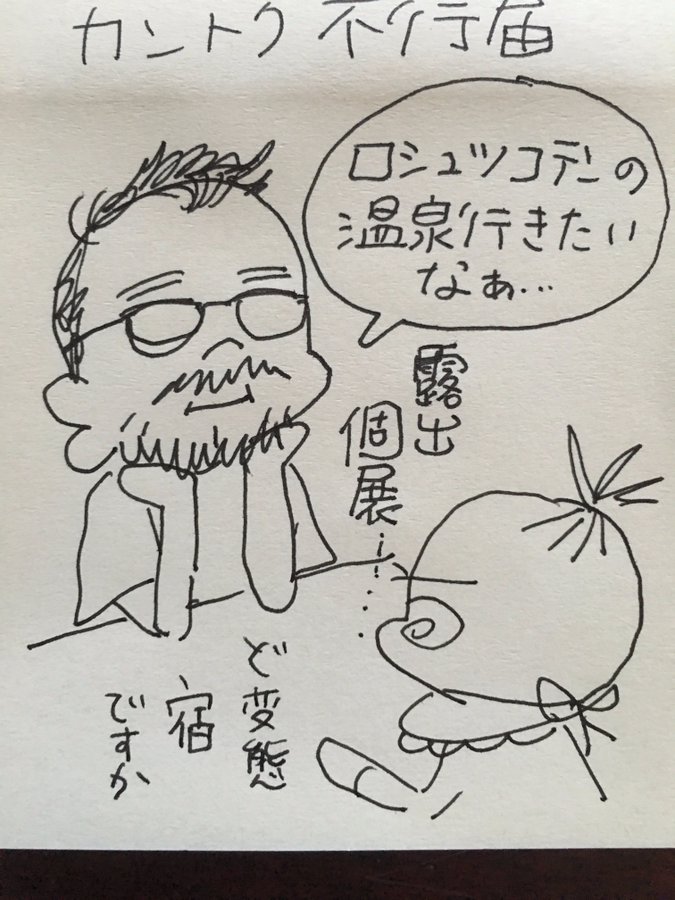 カントク不行届
ロシュツコテンの
温泉行きたい
なぁ…
露出
個展…!…
ど変態
宿
ですか